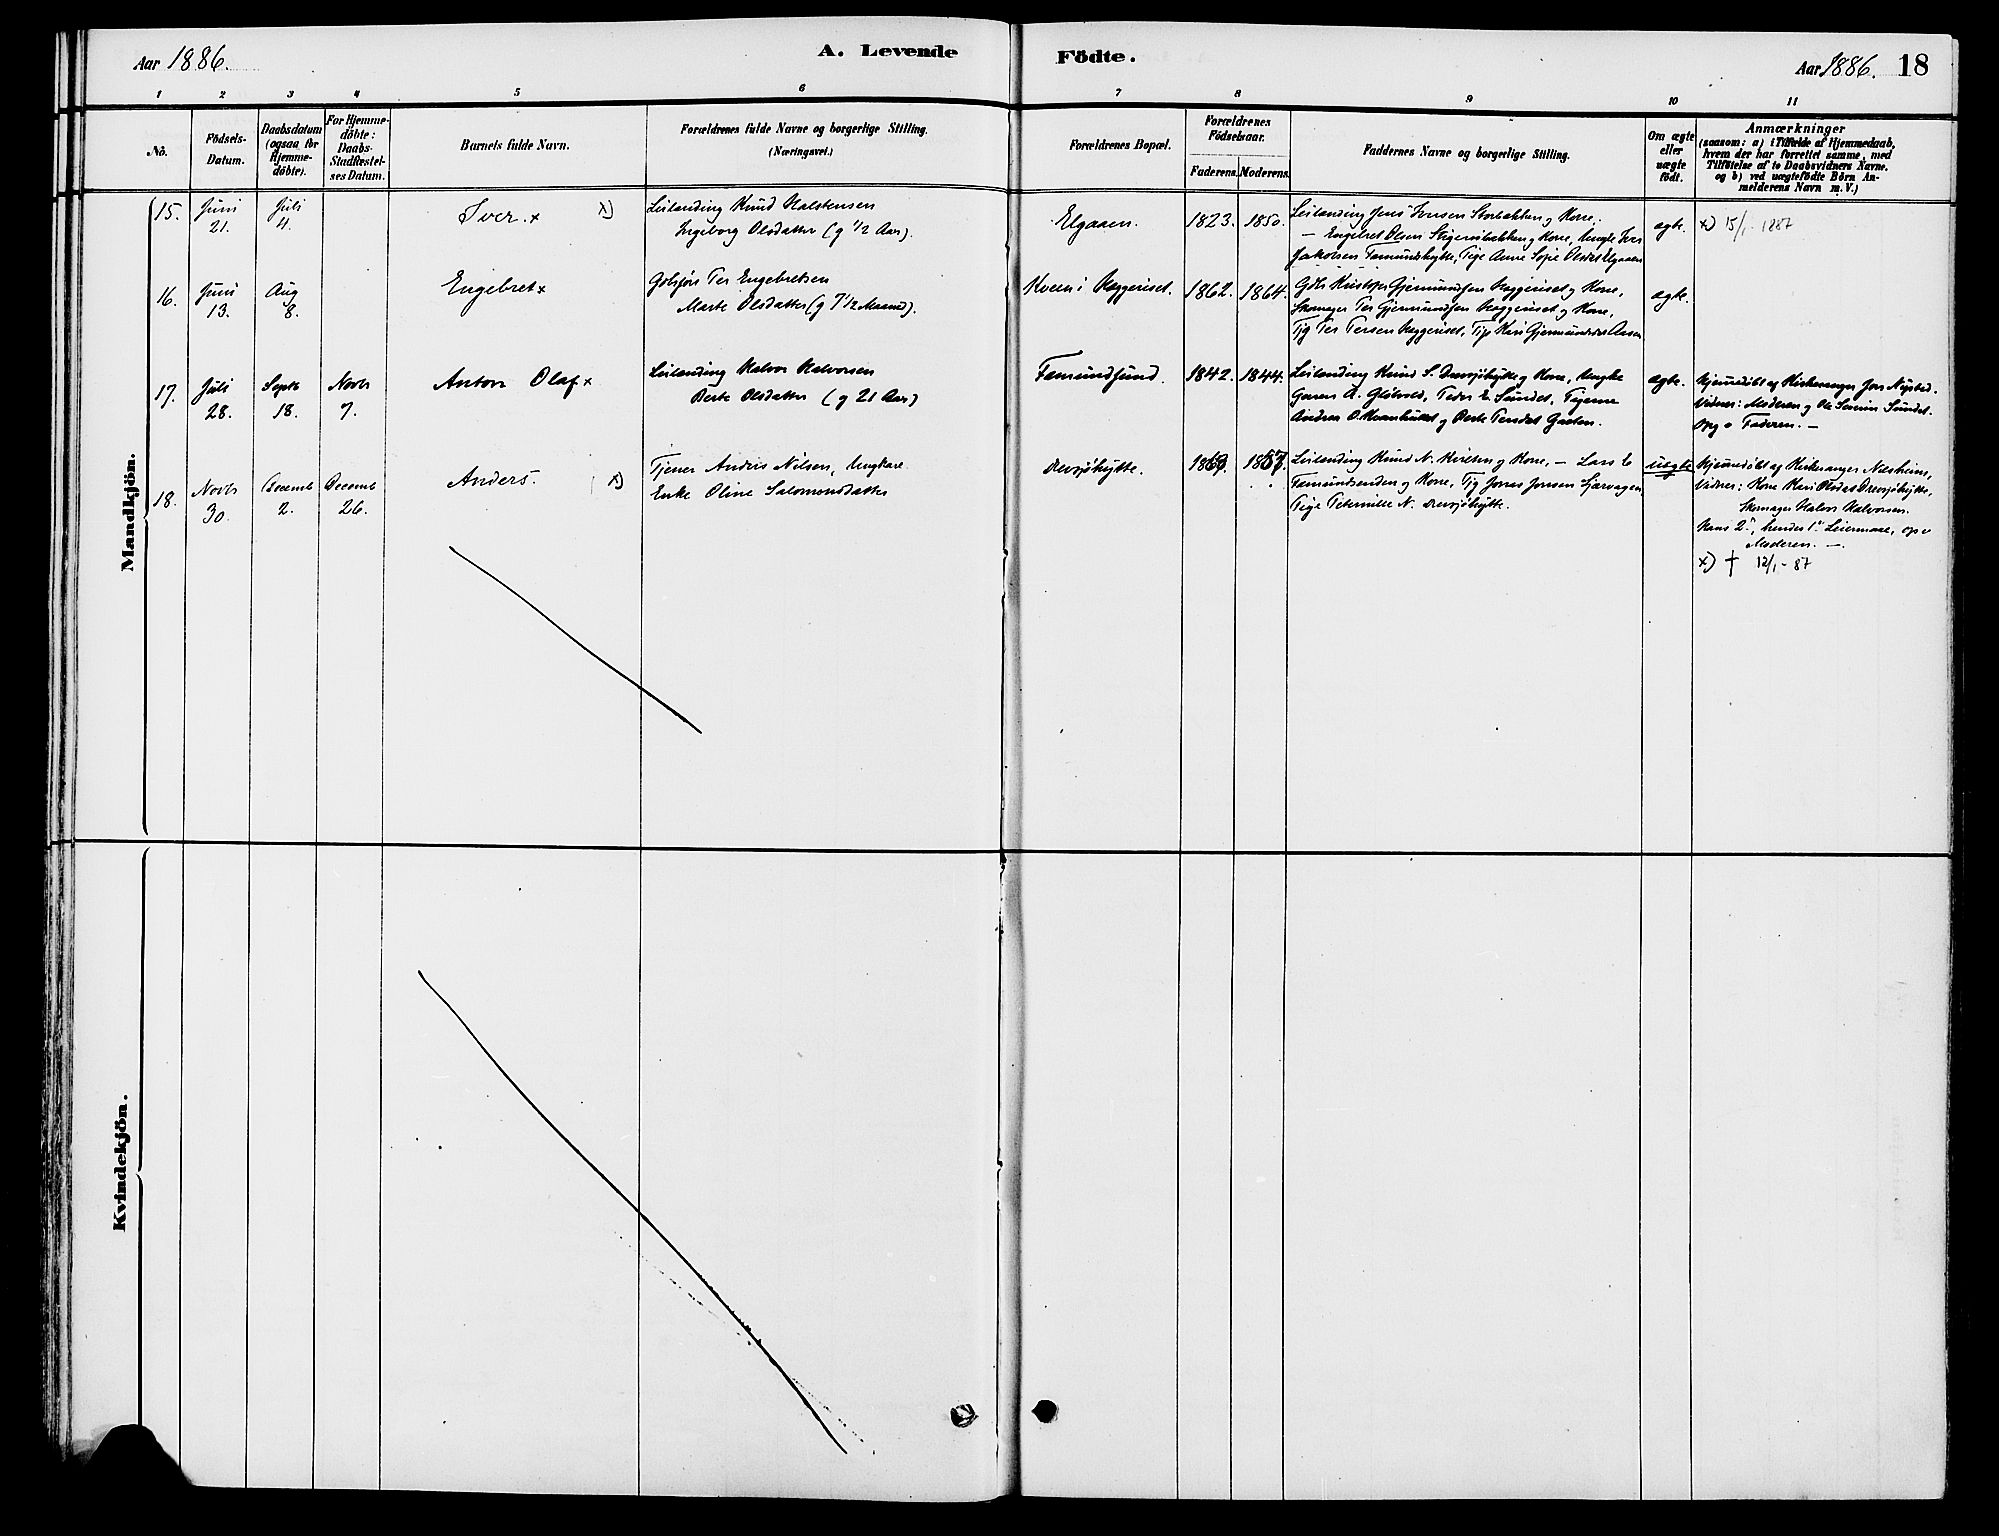 Aar 1886.
A. Levende
Födte.
Aar 1886. 18
1 2 3 4 5 6 7 8 9 10 11
No.
Födsels-
Datum.
Daabsdatum
(ogsaa for
Hjemme-
döbte).
For Hjemme-
döbte:
Daabs-
Stadfæstel-
ses Datum.
Barnets fulde Navn.
Forældrenes fulde Navne og borgerlige Stilling.
(Næringsvei.)
Forældrenes Bopæl.
Forældrenes
Födselsaar.
Faderens. Moderens.
Faddernes Navne og borgerlige Stilling.
Om ægte
eller
uægte
födt.
Anmærkninger
(saasom: a) i Tilfælde af Hjemmedaab,
hvem der har forrettet samme, med
Tilföielse af to Daabsvidners Navne.
og b) ved uægtefödte Börn An-
melderens Navn m. V.)
Mandkjön.
15.
Juni
21.
Juli
4.
Iver. x x)
Leilænding Knud Halstensen
Ingeborg Olsdatter (g 1/2 Aar).
Elgaaen.
1823. 1850.
Leilænding Jens Iversen og Kone.
— Engebret Olsen og Kone, Ungk Iver
Jakobsen Fæmundshytte, Pige Anne Sofie Olsdat Elgaaen
ægte.
x) 15/1 - 1887
16.
Juni
13.
Aug
8.
Engebret x
Per Engebretsen
Marte Olsdatter (g 7 1/2 Maaned).
1862. 1864.
Gdbr Kristofer Gjermundsen og Kone,
Skomager Per Gjermundsen og Kone,
Per Persen Kari Gjermundsdat Aasen
ægte.
17.
Juli
28.
Septb
18.
Novb
7.
Anton Olaf x
Leilænding Halvor Halvorsen
Berte Olsdatter (g 21 Aar)
Fæmundsund.
1842. 1844.
Leilænding Knud S. Drevsjöhytte og Kone, Ungka
Glötvold, Peder E Sundet, Pigerne
Andrea O. og Berte Persdat
ægte.
Hjemmedöbt af Kirkesanger Jon Nysted.
Vidner: Moderen og Ole Severin Sundet.
Opg v Faderen. —
18.
Novb
30.
Decemb
2.
Decemb
26.
Anders. x)
Tjener Anders Nilsen, Ungkarl
Enke Oline Salomonsdatter
Drevsjöhytte.
Leilænding Knud N. og Kone, — Lars E
Fæmundsenden og Kone, Jonas Jonsen
Pige Peternille N. Drevsjöhytte.
uægte
Hjemmedöbt af Kirkesanger Nesheim,
Vidner: Kone Kari Olsdat Drevsjöhytte,
Skomager Halvor Halvorsen.
Hans 2', hendes 1' Leiermaal, op v
Moderen. —
x) † 12/1 - 87
Kvindekjön.